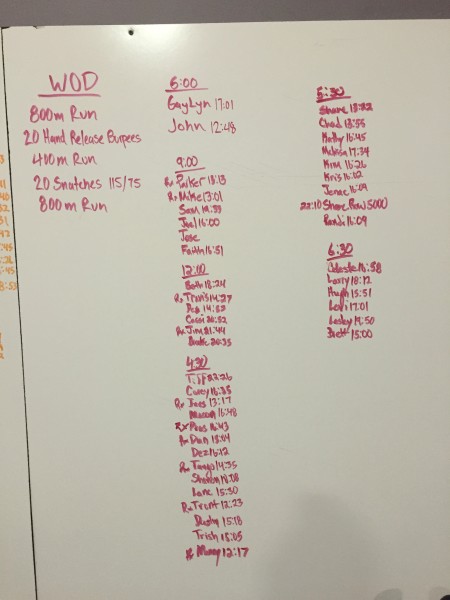 WOD
800m Run
20 Hand Release Burpees
400m Run
20 Snatches 115/75
800m Run
6:00
GayLyn 17:01
John 12:48
9:00
Rx Parker 13:13
Rx Mike 13:01
Sam
Joel 16:00
Jose
Faith 16:51
12:00
Beth 18:24
Rx Travis 14:27
14:52
Cassi 20:52
Rx Jim 21:44
20:35
4:30
Tiff 22:26
Corey 16:35
Rx Joes 13:17
16:48
Rx 16:43
Rx Dan 13:04
Dez 15:12
Rx Tango 14:35
Lane 15:30
Rx Trent 12:23
Dusty 15:18
Trish 15:05
12:17
5:30
Shane
Chad
16:45
Melissa 17:34
Kim 16:26
Kris 16:02
Jenae 16:09
22:10 Shane Row 5000
Randi 16:09
6:30
Celeste 16:58
Larry 18:12
Hugh 15:51
Levi 17:01
Lesley 19:50
Brett 15:00